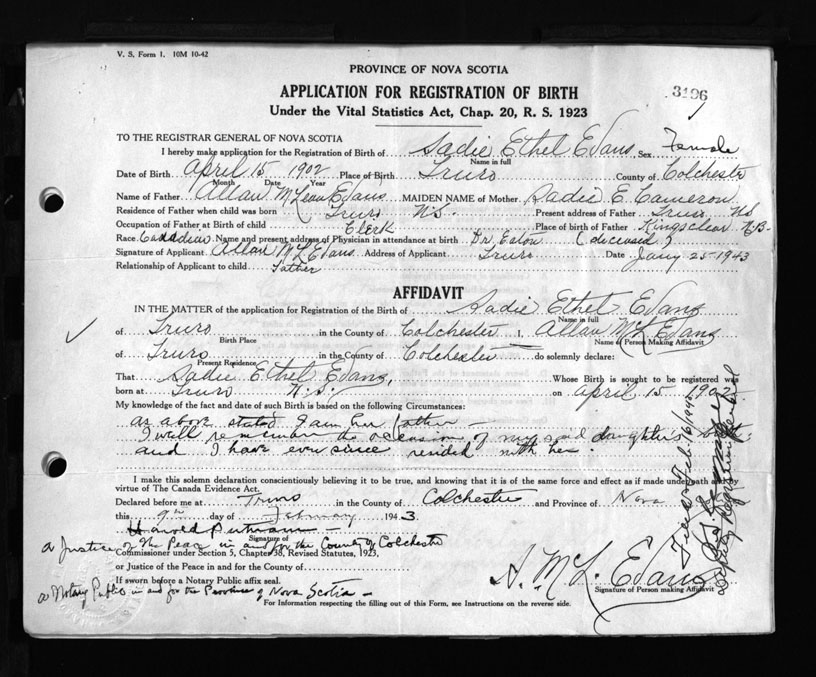 V. S. Form 1. 10M 10-42
PROVINCE OF NOVA SCOTIA
APPLICATION FOR REGISTRATION OF BIRTH
3196
Under the Vital Statistics Act, Chap. 20, R. S. 1923
TO THE REGISTRAR GENERAL OF NOVA SCOTIA
I hereby make application for the Registration of Birth of Sadie Ethel Evans Sex Female
Name in full
Date of Birth April 15 1902 Place of Birth Truro County of Colchester
Month Date Year
Name of Father Allan McLean Evans MAIDEN NAME of Mother Sadie E. Cameron
Residence of Father when child was born Truro N.S. Present address of Father Truro NS
Occupation of Father at Birth of child Clerk Place of birth of Father Kingsclear N.B.
Race Name and present address of Physician in attendance at birth Dr Eaton (deceased)
Signature of Applicant Allan McL Evans Address of Applicant Truro Date Jany 25-1943
Relationship of Applicant to child Father
AFFIDAVIT
IN THE MATTER of the application for Registration of the Birth of Sadie Ethel Evans
Name in full
of Truro in the County of Colchester I, Allan McL Evans
Birth Place Name of Person Making Affidavit
of Truro in the County of Colchester do solemnly declare:
Present Residence
That Sadie Ethel Evans, Whose Birth is sought to be registered was
born at Truro N.S. on April 15 1902
My knowledge of the fact and date of such Birth is based on the following Circumstances:
as above stated I am her father –
I well remember the occasion of my said daughter's birth
and I have ever since resided with her.
I make this solemn declaration conscientiously believing it to be true, and knowing that it is of the same force and effect as if made under oath and by
virtue of The Canada Evidence Act.
Declared before me at Truro in the County of Colchester and Province of Nova
this 9th day of February 1943.
Harold Putnam –
Signature of
a Justice of the Peace in and for the County of Colchester
Commissioner under Section 5, Chapter 38, Revised Statutes, 1923,
or Justice of the Peace in and for the County of
If sworn before a Notary Public affix seal.
a Notary Public in and for the Province of Nova Scotia –
A. McL. Evans
Signature of Person making Affidavit
For Information respecting the filling out of this Form, see Instructions on the reverse side.
Filed Feb. 16/1943
Deputy Registrar General